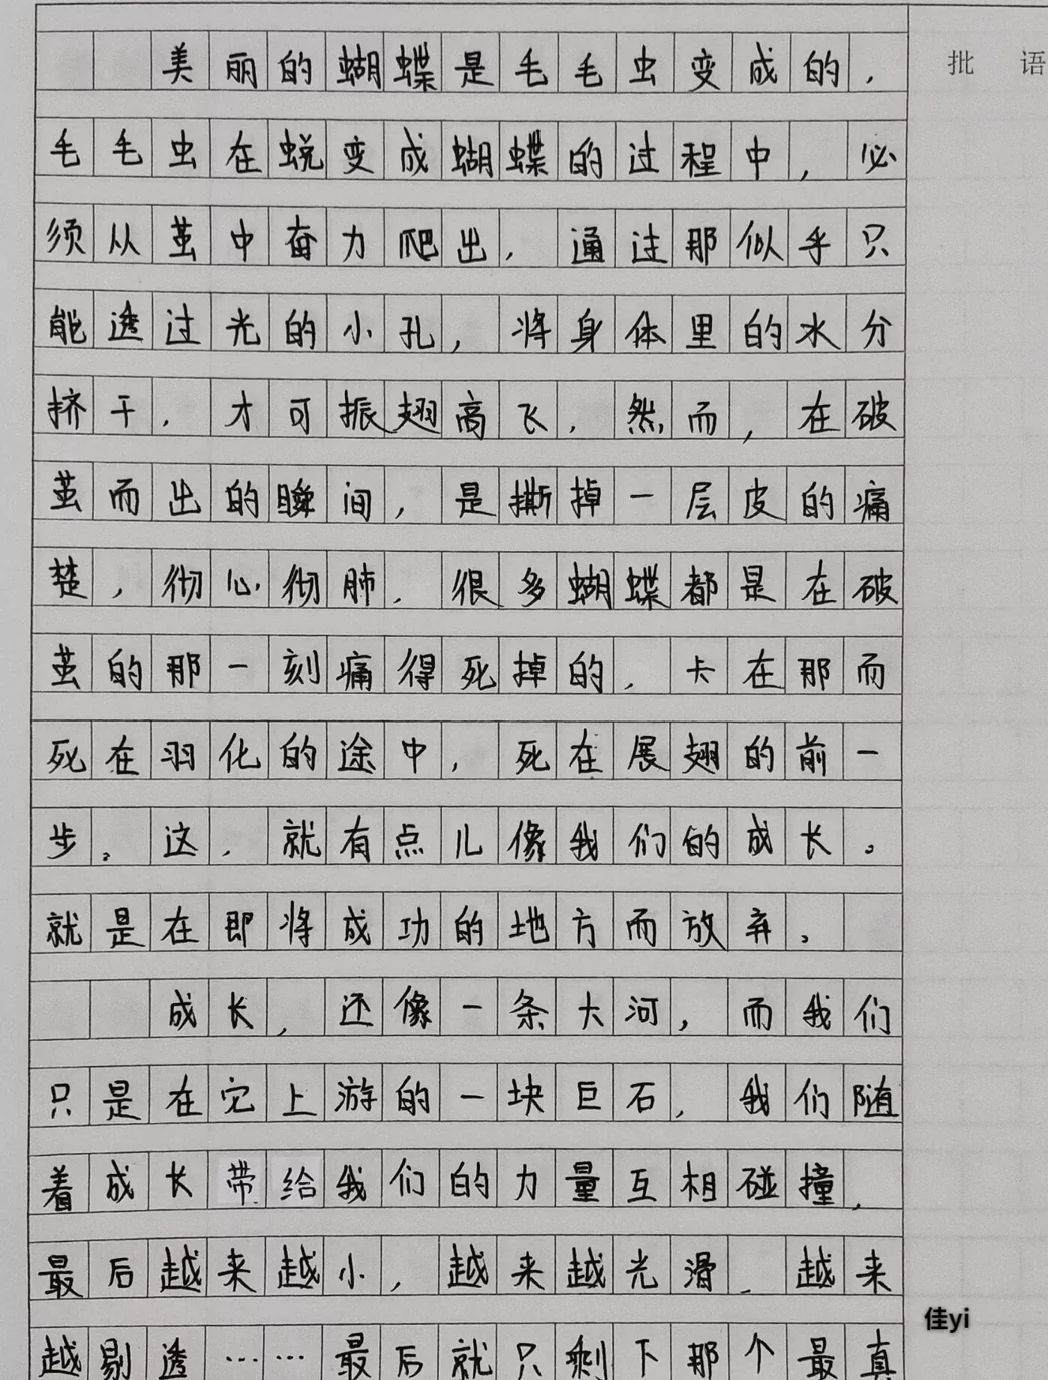 美丽的蝴蝶是毛毛虫变成的,
批 语
毛毛虫在蜕变成蝴蝶的过程中,必
须从茧中奋力爬出,通过那似乎只
能透过光的小孔,将身体里的水分
挤干,才可振翅高飞,然而,在破
茧而出的瞬间,是撕掉一层皮的痛
楚,彻心彻肺,很多蝴蝶都是在破
茧的那一刻痛得死掉的,卡在那而
死在羽化的途中,死在展翅的前一
步。这,就有点儿像我们的成长。
就是在即将成功的地方而放弃。
成长,还像一条大河,而我们
只是在它上游的一块巨石,我们随
着成长带给我们的力量互相碰撞,
最后越来越小,越来越光滑,越来
佳yi
越剔透……最后就只剩下那个最真